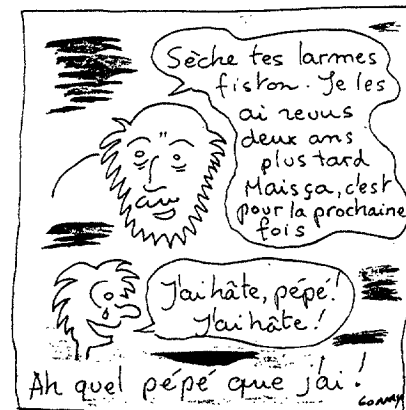 Sèche tes larmes
fiston. Je les
ai revus
deux ans
plus tard
Mais ça, c'est
pour la prochaine
fois
J'ai hâte, pépé!
J'ai hâte!
Ah quel pépé que j'ai!